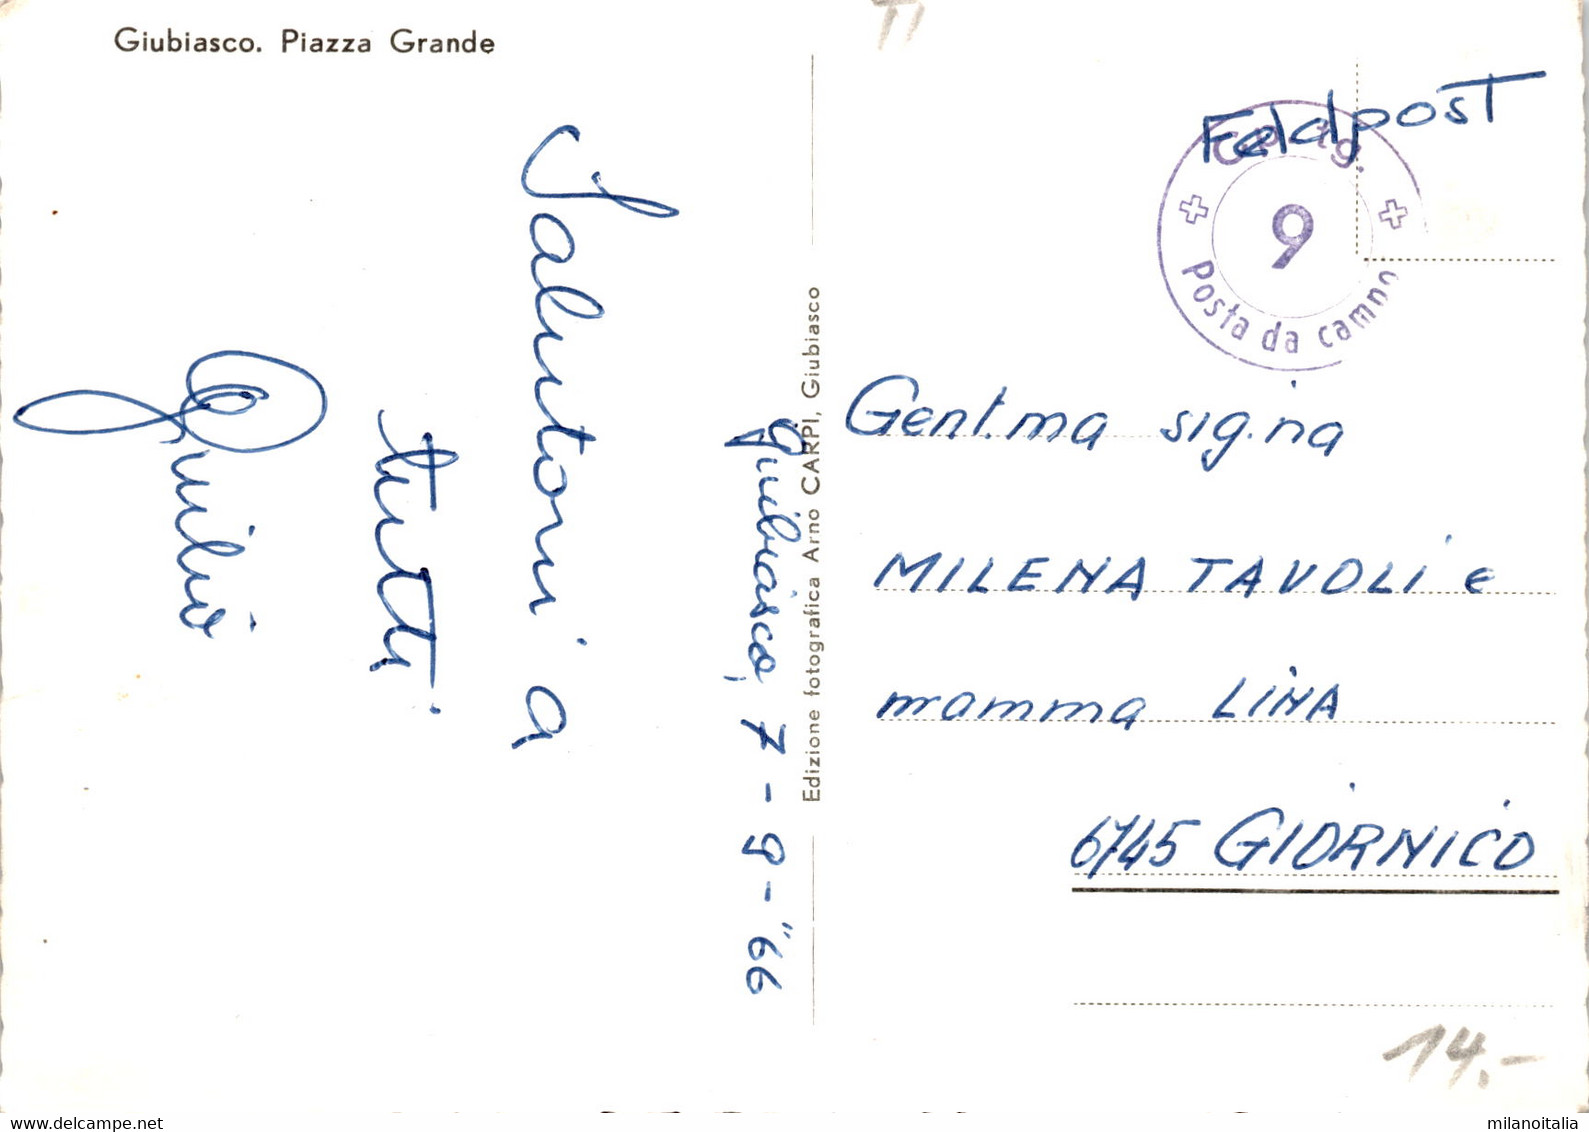 Giubiasco. Piazza Grande
TI
Giubiasco, 7-9-"66
Salutoni a
tutti
Giulio
Edizione fotografica Arno CARPI, Giubiasco
Feldpost
9
Posta da campo
Gent.ma sig.na
MILENA TAVOLI e
mamma LINA
6745 GIORNICO
14.-
milanoitalia